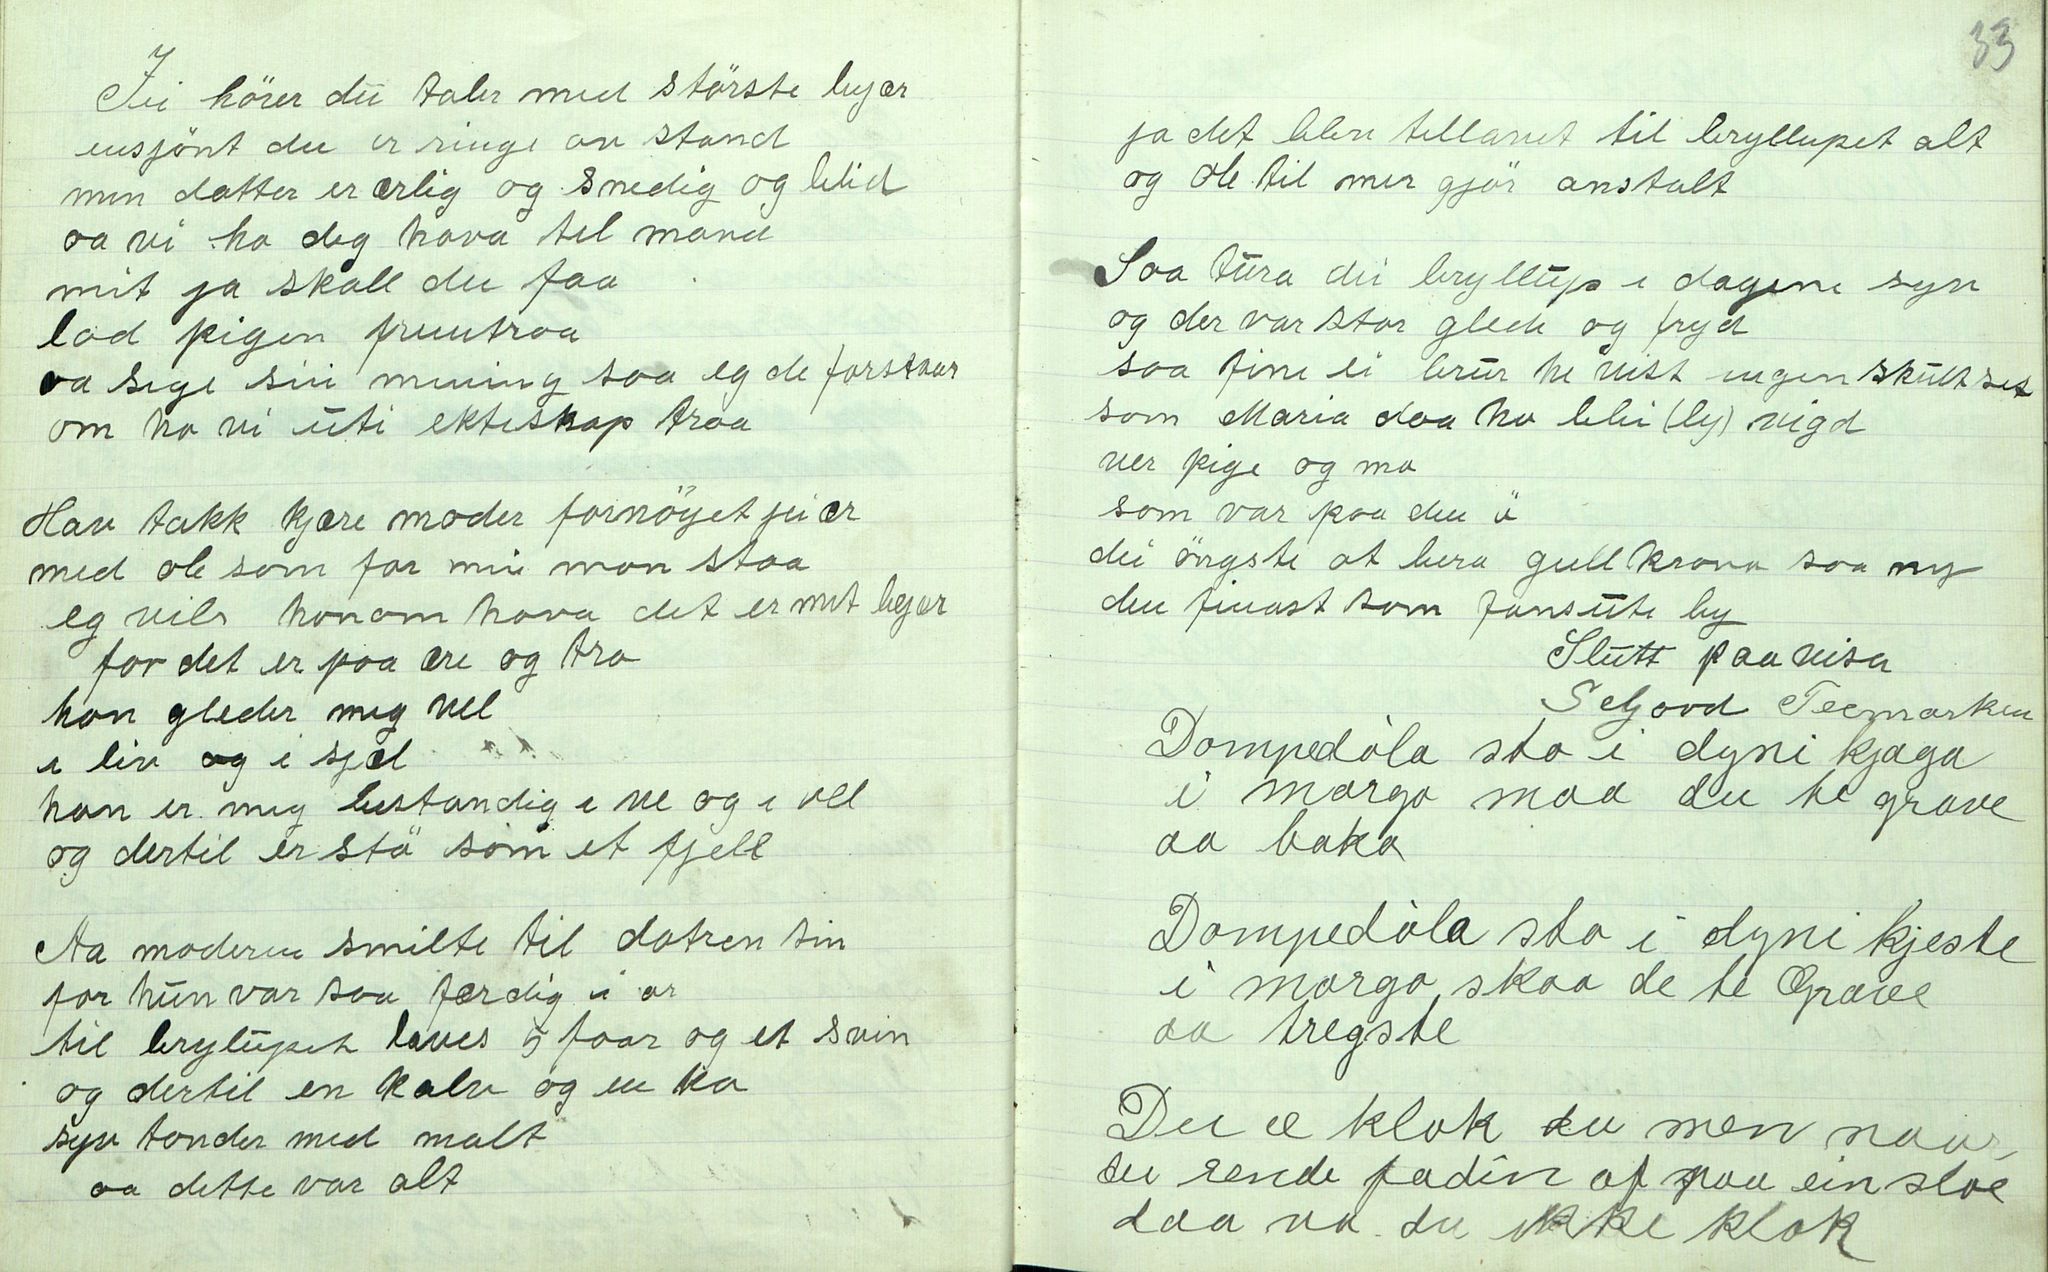 Jei hörer du taler med störste begær
ensjönt du er ringe av stand
men datter er ærlig og snedig og blid
aa vi ho deg hava til mand
mit ja skall du faa
lad pigen fremtraa
aa sege sin mening saa eg de forstaar
om ho vi uti ekteskap traa
Hav takk kjære moder fornöyet jei ær
med ole som for min mon staa
eg vile honom hava det er mit begær
for det er paa ære og tro
han gleder meg vel
i liv og i sjæl
han er meg bestandig i ve og i vel
og dertil er stö som et fjell
Aa moderen smilte til datren sin
for hun var saa færdig i or
til brylupet laves 5 faar og et svin
og dertil en kalv og en ko
syv tonder med malt
aa dette var alt
33
ja det blev tillavet til bryllupet alt
og ole til mer gjör anstalt
Saa tura dei bryllup i dagene syv
og der var stor glede og fryd
saa fine ei brur he vist ingen skult set
som Maria daa ho blei (by) vigd
ver pige og mo
som var paa den ö
dei öngste at bera gullkrona saa ny
den finast som fans ute by
Slutt paa visa
Seljord Telemarken
Dompedòla sto i dyni kjaga
i morgo maa du te grave
aa baka
Dompedòla sto i dyni kjeste
i morgo skaa de te Grave
aa tregste
Du æ klok du men naar
du rende fadin af paa ein sloe
daa va du ikke klok